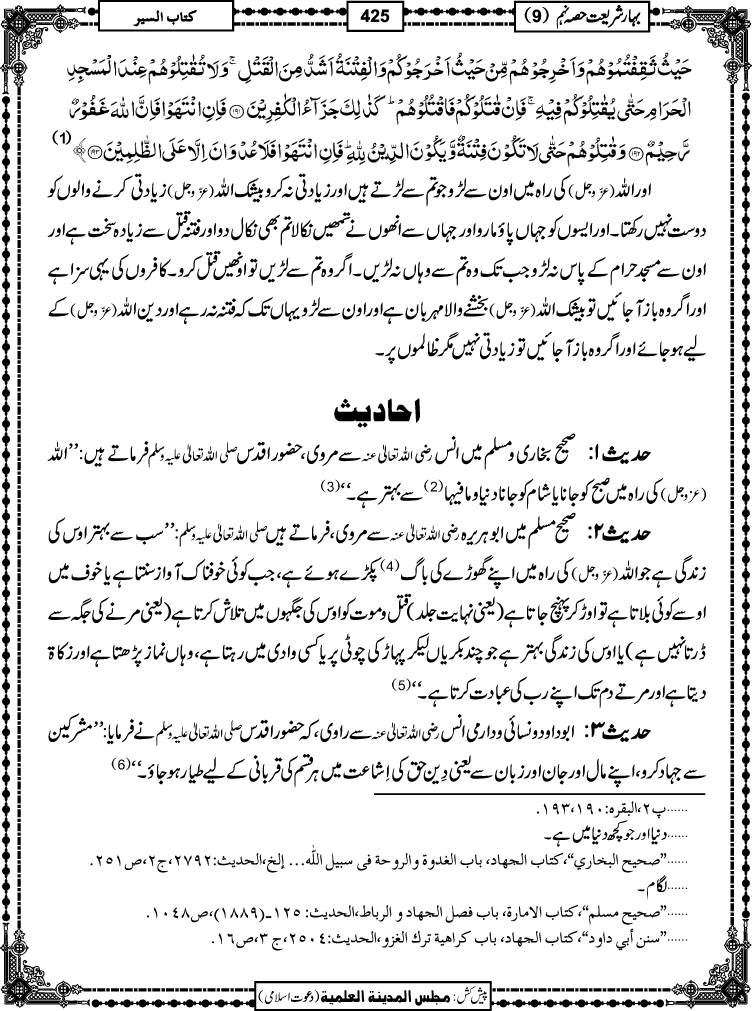 بہارِ شریعت حصہ نہم (9)
425
کتاب السیر
حَیۡثُ ثَقِفۡتُمُوۡہُمْ وَاَخْرِجُوۡہُمۡ مِّنْ حَیۡثُ اَخْرَجُوۡکُمْ وَالْفِتْنَۃُ اَشَدُّ مِنَ الْقَتْلِ ۚ وَلَا تُقٰتِلُوۡہُمْ عِنۡدَ الْمَسْجِدِ
الْحَرَامِ حَتّٰی یُقٰتِلُوۡکُمْ فِیۡہِ ۚ فَاِنۡ قٰتَلُوۡکُمْ فَاقْتُلُوۡہُمْ ؕ کَذٰلِکَ جَزَآءُ الْکٰفِرِیۡنَ ﴿۱۹۱﴾ فَاِنِ انۡتَہَوْا فَاِنَّ اللہَ غَفُوۡرٌ
رَّحِیۡمٌ ﴿۱۹۲﴾ وَقٰتِلُوۡہُمْ حَتّٰی لَا تَکُوۡنَ فِتْنَۃٌ وَّیَکُوۡنَ الدِّیۡنُ لِلہِ ؕ فَاِنِ انۡتَہَوْا فَلَا عُدْوَانَ اِلَّا عَلَی الظّٰلِمِیۡنَ ﴿۱۹۳﴾ ﴾ (1)
اور اللہ (عزوجل) کی راہ میں اون سے لڑو جو تم سے لڑتے ہیں اور زیادتی نہ کرو بیشک اللہ (عزوجل) زیادتی کرنے والوں کو
دوست نہیں رکھتا۔ اور ایسوں کو جہاں پاؤ مارو اور جہاں سے انھوں نے تمھیں نکالا تم بھی نکال دو اور فتنہ قتل سے زیادہ سخت ہے اور
اون سے مسجد حرام کے پاس نہ لڑو جب تک وہ تم سے وہاں نہ لڑیں۔ اگر وہ تم سے لڑیں تو اونھیں قتل کرو۔ کافروں کی یہی سزا ہے
اور اگر وہ باز آجائیں تو بیشک اللہ (عزوجل) بخشنے والا مہربان ہے اور اون سے لڑو یہاں تک کہ فتنہ نہ رہے اور دین اللہ (عزوجل) کے
لیے ہو جائے اور اگر وہ باز آجائیں تو زیادتی نہیں مگر ظالموں پر۔
احادیث
حدیث ۱: صحیح بخاری و مسلم میں انس رضی اللہ تعالٰی عنہ سے مروی، حضور اقدس صلی اللہ تعالٰی علیہ وسلم فرماتے ہیں: ’’اللہ
(عزوجل) کی راہ میں صبح کو جانا یا شام کو جانا دنیا و مافیہا(2) سے بہتر ہے۔‘‘(3)
حدیث ۲: صحیح مسلم میں ابوہریرہ رضی اللہ تعالٰی عنہ سے مروی، فرماتے ہیں صلی اللہ تعالٰی علیہ وسلم: ’’سب سے بہتر اوس کی
زندگی ہے جو اللہ (عزوجل) کی راہ میں اپنے گھوڑے کی باگ(4) پکڑے ہوئے ہے، جب کوئی خوفناک آواز سنتا ہے یا خوف میں
اوسے کوئی بلاتا ہے تو اوڑ کر پہنچ جاتا ہے (یعنی نہایت جلد) قتل و موت کو اوس کی جگہوں میں تلاش کرتا ہے (یعنی مرنے کی جگہ سے
ڈرتا نہیں ہے) یا اوس کی زندگی بہتر ہے جو چند بکریاں لیکر پہاڑ کی چوٹی پر یا کسی وادی میں رہتا ہے، وہاں نماز پڑھتا ہے اور زکاۃ
دیتا ہے اور مرتے دم تک اپنے رب کی عبادت کرتا ہے۔‘‘(5)
حدیث ۳: ابوداود و نسائی و دارمی انس رضی اللہ تعالٰی عنہ سے راوی، کہ حضور اقدس صلی اللہ تعالٰی علیہ وسلم نے فرمایا: ’’مشرکین
سے جہاد کرو، اپنے مال اور جان اور زبان سے یعنی دِین حق کی اِشاعت میں ہر قسم کی قربانی کے لیے طیار ہو جاؤ۔‘‘(6)
......پ۲، البقرہ: ۱۹۰، ۱۹۳.
......دنیا اور جو کچھ دنیا میں ہے۔
......’’صحیح البخاري‘‘، کتاب الجهاد، باب الغدوة والروحة فى سبيل الله... إلخ، الحدیث: ۲۷۹۲، ج۲، ص۲۵۱.
......لگام۔
......’’صحیح مسلم‘‘، کتاب الامارة، باب فصل الجهاد و الرباط، الحدیث: ۱۲۵ـ(۱۸۸۹)، ص۱۰۴۸.
......’’سنن أبي داود‘‘، کتاب الجهاد، باب کراهية ترك الغزو، الحدیث: ۲۵۰۴، ج ۳، ص۱۶.
پیش کش: مجلس المدینة العلمیة (دعوتِ اسلامی)